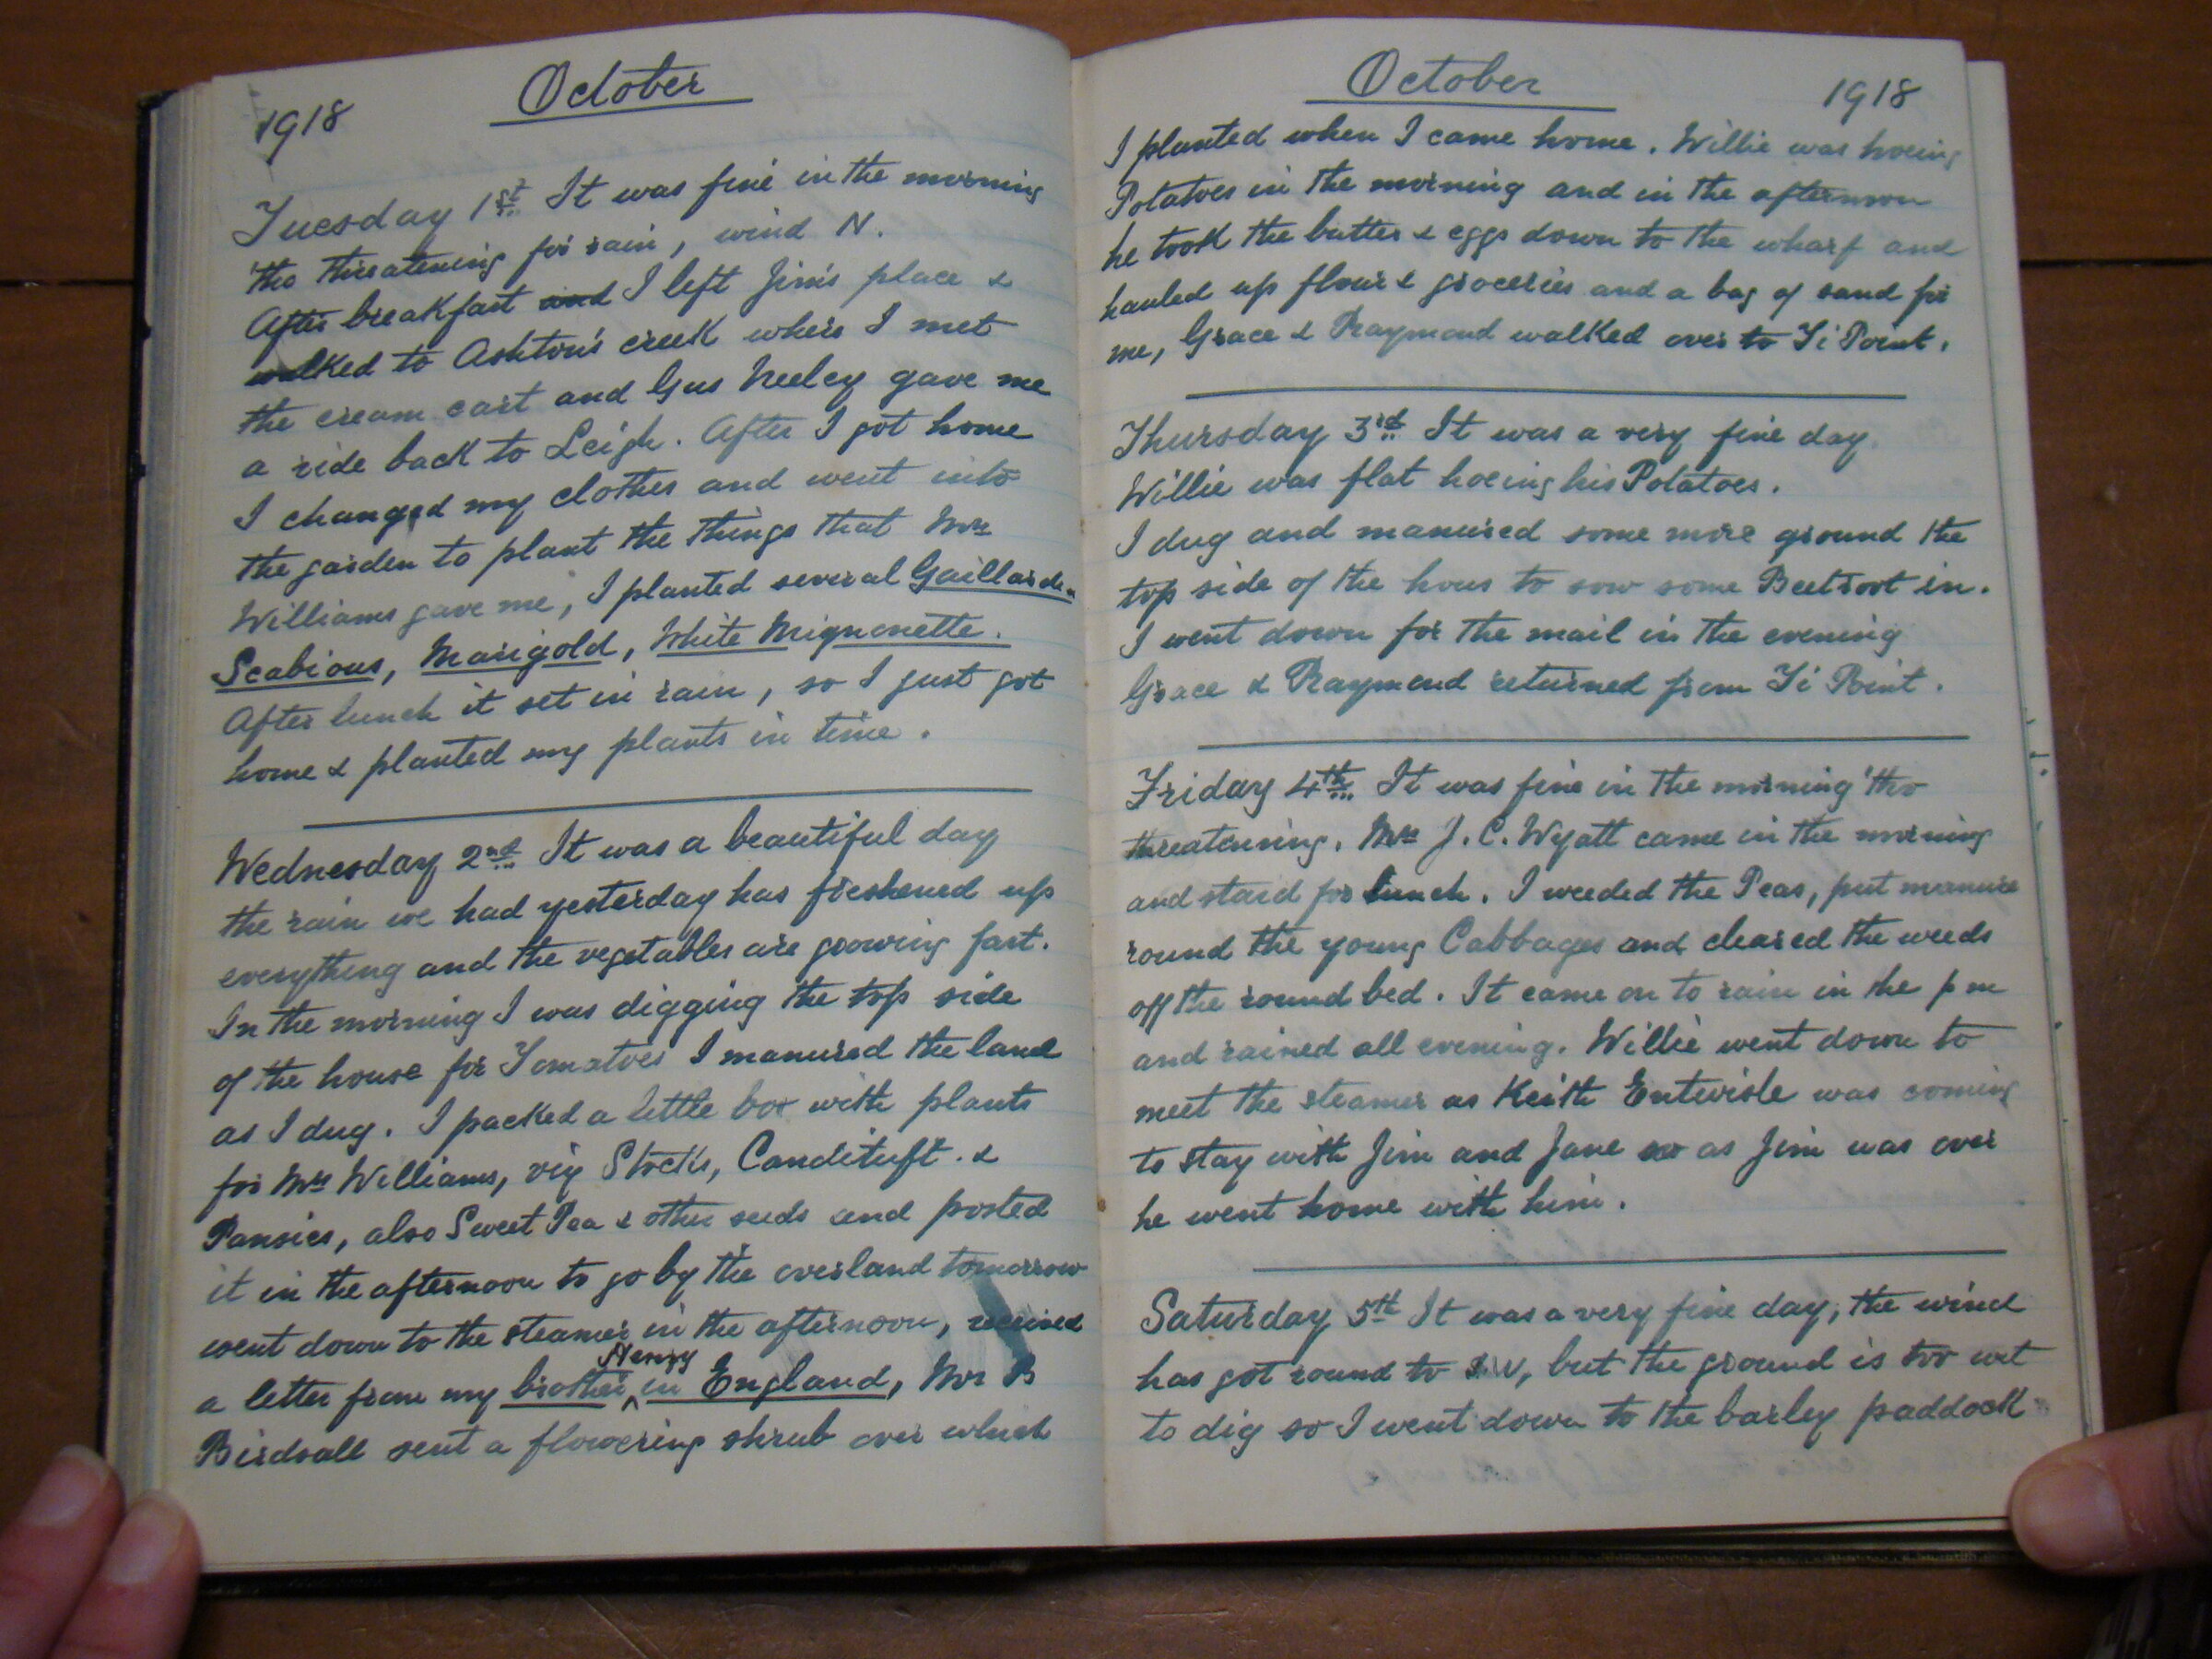 October
1918
Tuesday 1st It was fine in the morning
'tho threatening for rain, wind N.
After breakfast and I left Jim's place &
walked to Ashton's creek where I met
the cream cart and Gus Neeley gave me
a ride back to Leigh. After I got home
I changed my clothes and went into
the garden to plant the things that Mrs
Williams gave me, I planted several Gaillardia
Scabious, Marigold, White Mignonette.
After lunch it set in rain, so I just got
home & planted my plants in time.
Wednesday 2nd It was a beautiful day
the rain we had yesterday has freshened up
everything and the vegetables are growing fast.
In the morning I was digging the top side
of the house for Tomatoes I manured the land
as I dug. I packed a little box with plants
for Mrs Williams, viz Stocks, Candituft. &
Pansies, also Sweet Pea & other seeds and posted
it in the afternoon to go by the overland tomorrow
went down to the steamer in the afternoon, received
a letter from my brother ^ Henry in England, Mr B
Birdsall sent a flowering shrub over which
October
1918
I planted when I came home. Willie was hoeing
Potatoes in the morning and in the afternoon
he took the butter & eggs down to the wharf and
hauled up flour & groceries and a bag of sand for
me, Grace & Raymond walked over to Ti Point.
Thursday 3rd It was a very fine day.
Willie was flat hoeing his Potatoes.
I dug and manured some more ground the
top side of the hous to sow some Beetroot in.
I went down for the mail in the evening
Grace & Raymond returned from Ti Point.
Friday 4th It was fine in the morning 'tho
threatening. Mrs J. C. Wyatt came in the morning
and staid for lunch. I weeded the Peas, put manure
round the young Cabbages and cleared the weeds
off the round bed. It came on to rain in the p m
and rained all evening. Willie went down to
meet the steamer as Keith Entwisle was coming
to stay with Jim and Jane so as Jim was over
he went home with him.
Saturday 5th It was a very fine day, the wind
has got round to S.W, but the ground is too wet
to dig so I went down to the barley paddock